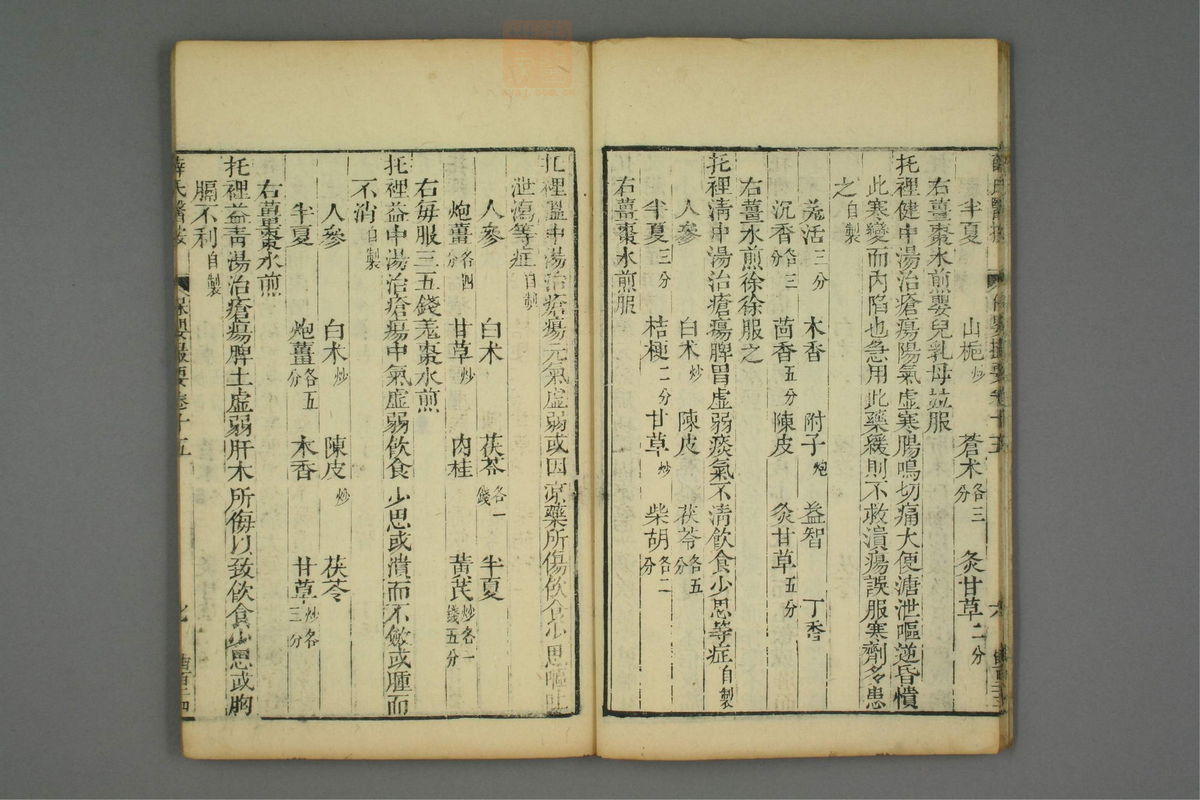 半夏 山梔炒 蒼朮各三分 炙甘草二分
右薑棗水煎嬰兒乳母並服
托裡健中湯治瘡瘍陽氣虛寒腸鳴切痛大便溏泄嘔逆昏憒
此寒變而內陷也急用此藥緩則不救潰瘍誤服寒劑多患
之自製
羗活三分 木香 附子炮 益智 丁香
沉香各三分 茴香五分 陳皮 炙甘草五分
右薑水煎徐徐服之
托裡清中湯治瘡瘍脾胃虛弱痰氣不清飲食少思等症自製
人參 白朮炒 陳皮 茯苓各五分
半夏三分 桔梗二分 甘草炒 柴胡各二分
右薑棗水煎服
托裡溫中湯治瘡瘍元氣虛弱或因凉藥所傷飲食少思嘔吐
泄瀉等症自製
人參 白朮 茯苓各一錢 半夏
炮薑各四分 甘草炒 肉桂 黃芪炒各一錢五分
右每服三五錢羗棗水煎
托裡益中湯治瘡瘍中氣虛弱飲食少思或潰而不斂或腫而
不消自製
人參 白朮炒 陳皮炒 茯苓
半夏 炮薑各五分 木香 甘草炒各三分
右薑棗水煎
托裡益青湯治瘡瘍脾土虛弱肝木所侮以致飲食少思或胸
膈不利自製
薛氏醫按 保嬰撮要卷十五